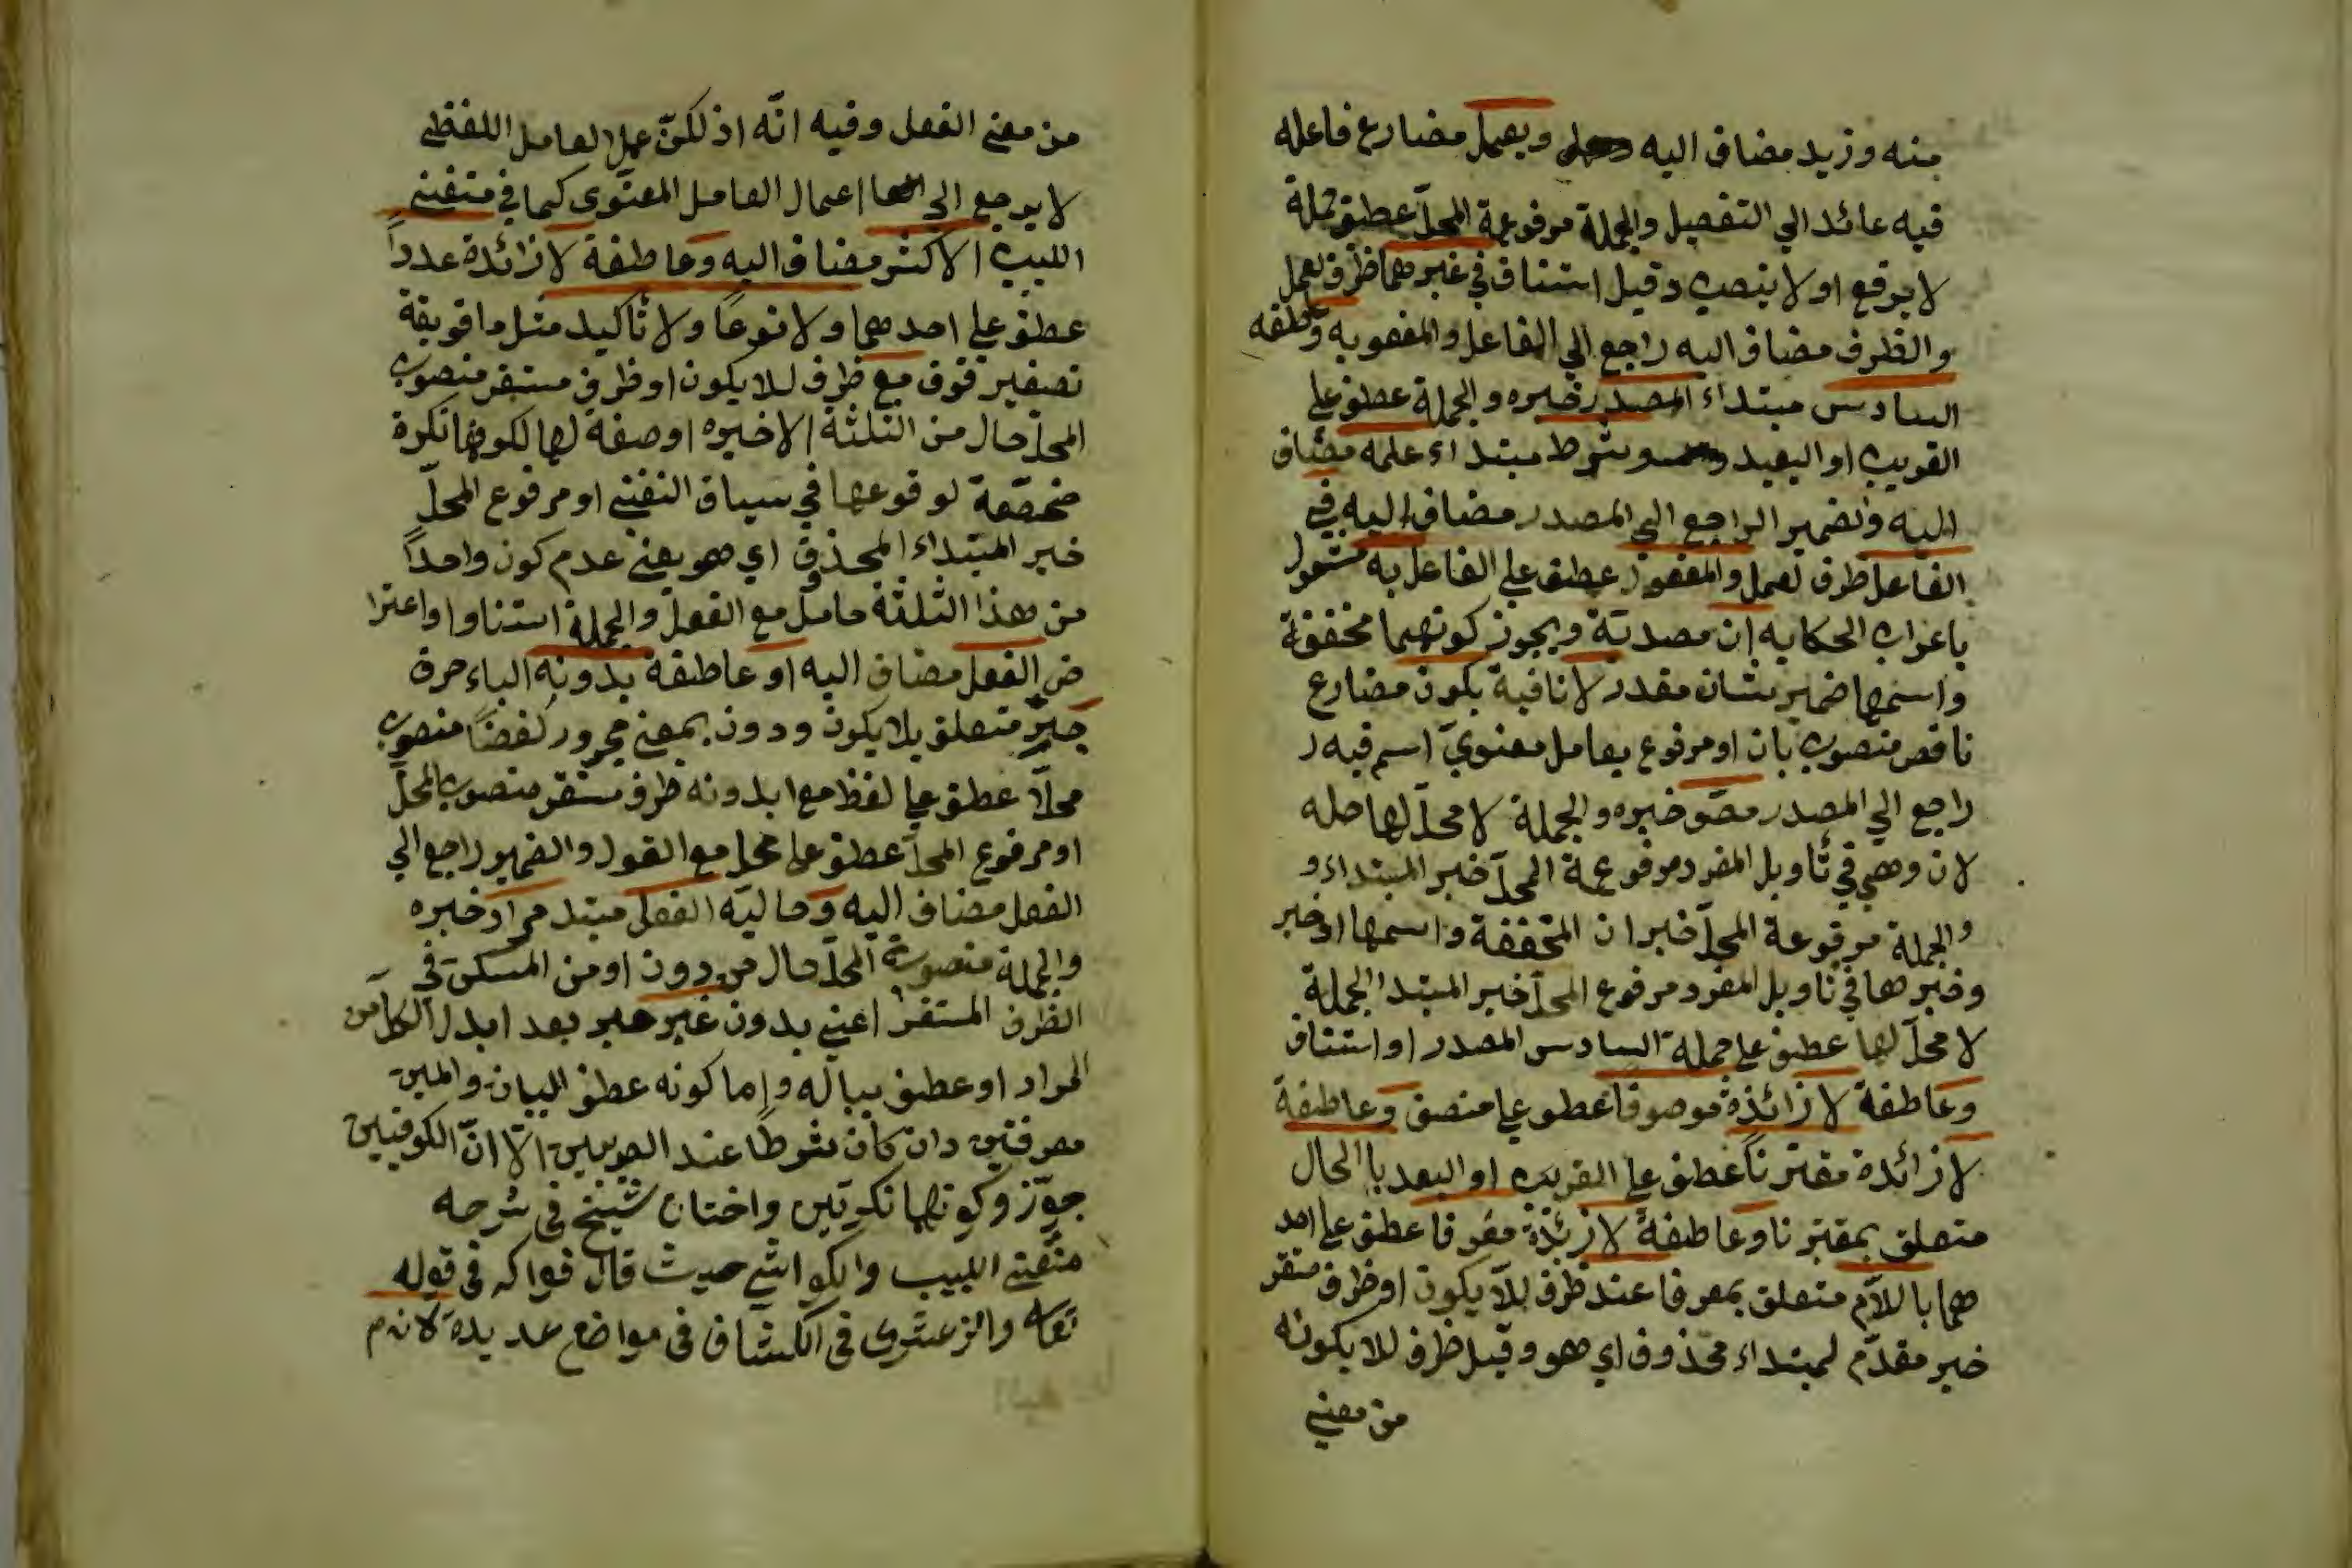 منه وزيد مضاف اليه ويعمل مضارع فاعله
فيه عائد الي التفصيل والجملة مرفوعة المحلّ عطف جملة
لا يرفع او لا ينصب وقيل استئناف في غيرهما ظرف لعمل
والظرف مضاف اليه راجع الي الفاعل والمفعول به وعاطفه
السادس مبتداء المصدر خبره والجملة عطف علي
القريب او البعيد وشرط مبتداء علمه مضاف
اليه والضمير الراجع الي المصدر مضاف اليه في
الفاعل ظرف لعمل والمفعول عطف علي الفاعل به مشغول
باعراب الحكايه ان مصدريّة ويجوز كونهما مخففة
واسمها ضمير شان مقدر لا نافية يكون مضارع
ناقص منصوب بان او مرفوع بعامل معنويّ اسم فيه ر
راجع الي المصدر خبره والجملة لا محلّ لها صله
لان وهي في تأويل المفرد مرفوعة المحلّ خبر المبتداء و
والجملة مرفوعة المحلّ خبر ان المخففة واسمها او خبر
وخبرها في تاويل المفرد مرفوع المحلّ خبر المبتدا الجملة
لا محلّ لها عطف علي جملة السادس المصدر او استئناف
وعاطفة لا زائدة موصوفا عطف علي منصف وعاطفة
لا زائدة مقترناً عطف علي القريب او البعد با الحال
متعلق بمقترنا وعاطفةً لا زئدة معرفا عطف علي احد
هما با للاّم متعلق بمعرفا عند ظرف للاّ يكون او ظرف مستقر
خبر مقدّم لمبتداء محذوف اي هو وقيل ظرف للا يكونه
من معني
من معني الفعل وفيه انّه اذ لكنّ عمل العامل اللفظي
لا يرجع الي اعمال العامل المعنوي كما في متغني
اللبيب الاكثر مضاف اليه وعاطفة لا زائدة عدداً
عطف علي احدهما ولا نوعاً ولا تأكيد مثل ما قويقة
تصغير فوق مع ظرف للا يكون او ظرف مستقر منصوب
المحلّ حال من الثلثة الاخيره او صفة لها لكونها نكرة
مخصّصة لوقوعها في سياق النفي او مرفوع المحلّ
خبر المبتداء المحذوف اي هو يعني عدم كون واحداً
من هذا الثلثة حاصل مع الفعل والجملة استنا او اعترا
ض الفعل مضاف اليه او عاطفة بدونه الباء حرف
جرّ متعلق بلا يكون ودون بمعني مجرور لفضاً منصوب
محلّا عطف علي لفظ مع ا بدونه ظرف مستقر منصوب المحلّ
او مرفوع المحلّ عطف علي محل مع القول والضمير راجع الي
الفعل مضاف اليه وحاليّه الفعل مبتد مراد خبره
والجملة منصوبة المحلّ حال من دون او من المسكن في
الظرف المستقرّ اعني بدون غير خبر بعد ابدل الكلّ من
المراد او عطف بياله واما كونه عطف البيان والمبين
معرفتين وان كان شرطاً عند البصريين الّا انّ الكوفيين
جوّزو كونهما نكرتين واختار شيخ في شرحه
متغني اللبيب والكواشي حيث قال فواكه في قوله
تعالى والزمخشري في الكشاف في مواضع عديدة لازم